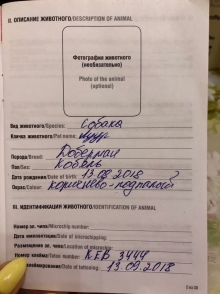 II. ОПИСАНИЕ ЖИВОТНОГО/DESCRIPTION OF ANIMAL
Фотография животного
(необязательно)
Photo of the animal
(optional)
Вид животного/Species: Собака
Кличка животного/Pet name:
Порода/Breed: Доберман
Пол/Sex: Кобель
Дата рождения/Date of birth: 13.09.2018
Окрас/Colour: коричнево-подпалый
III. ИДЕНТИФИКАЦИЯ ЖИВОТНОГО/IDENTIFICATION OF ANIMAL
Номер эл. чипа/Microchip number:
Дата имплантации/Date of microchipping:
Размещение эл. чипа/Location of microchip:
Номер клейма/Tattoo number: KFB 3444
клеймирования/Date of tattooing: 13.09.2018